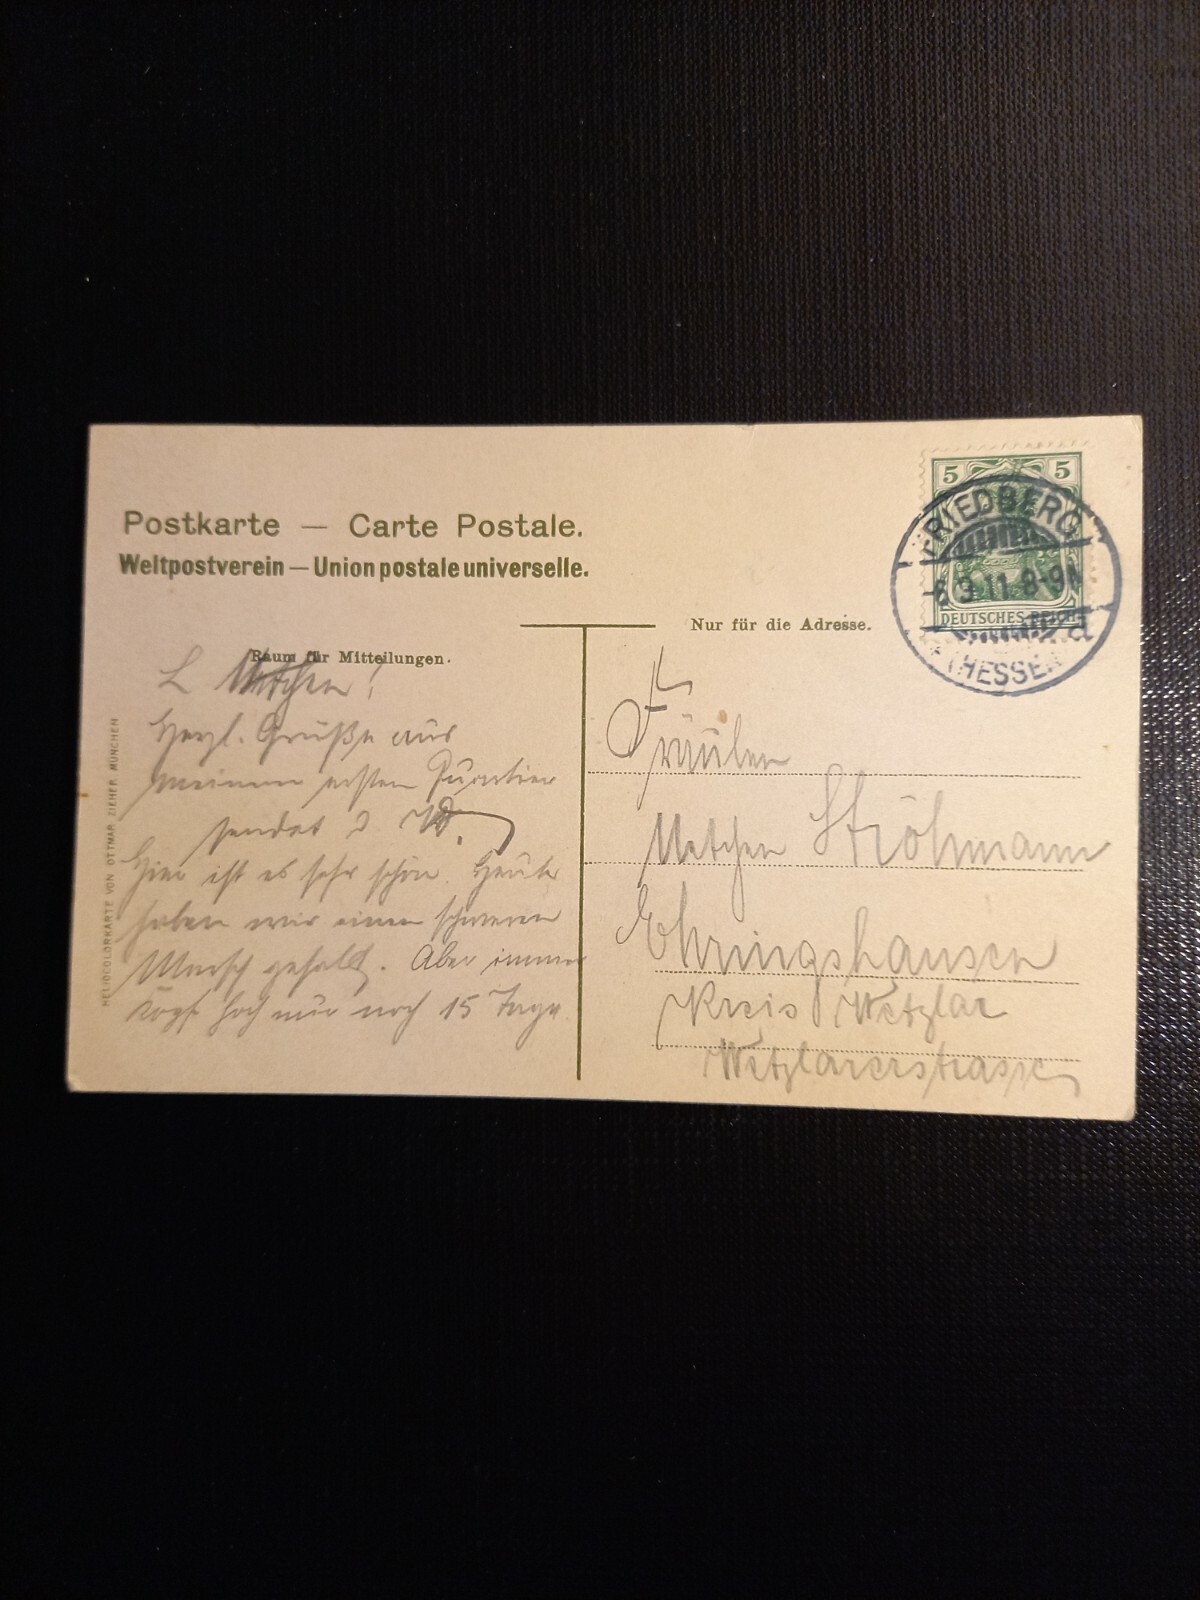 Postkarte — Carte Postale.
Weltpostverein — Union postale universelle.
Nur für die Adresse.
Raum für Mitteilungen.
5 5
DEUTSCHES REICH
FRIEDBERG
6.3.11.8-9N
(HESSEN)
HELIOCOLORKARTE VON OTTMAR ZIEHER MÜNCHEN
L !
Herzl. Grüße aus
meinem ersten Quartier
sendet D.
Hier ist es sehr schön. Heute
haben wir einen schweren
Marsch gehabt. Aber immer
Kopf hoch nur noch 15 Tage.
Fräulein
Ströhmann
Ehringshausen
Kreis Wetzlar
Wetzlarerstrasse